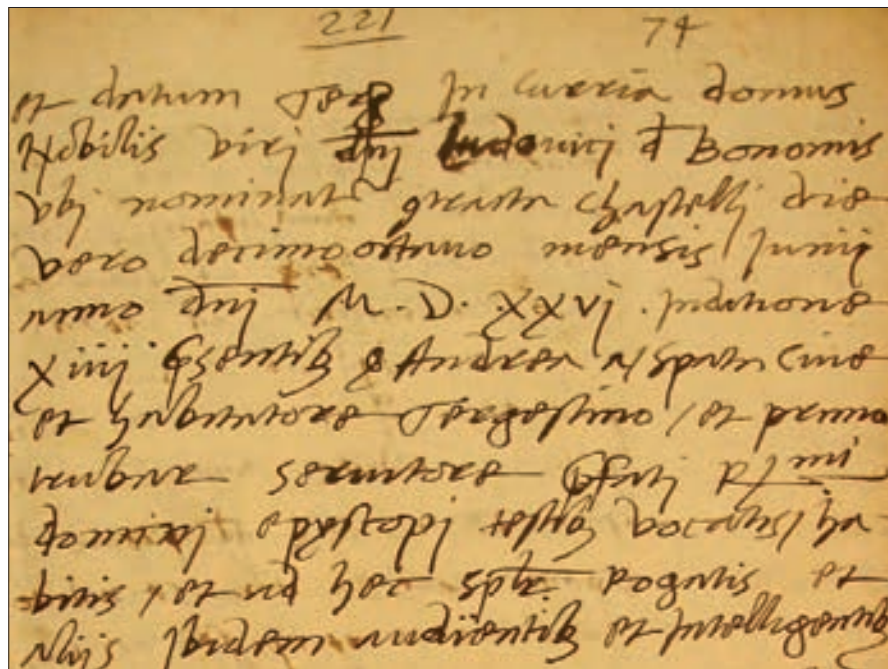 221 74
et datum Terg In Curria domus
Nobilis viri dnj Ludovici d Bonomis
vbj nominat chastelli die
vero decimooctauo mensis Junij
anno dnj M.D.XXVJ. Inditione
XIIIJ psentib q Andrea a spata Ciue
et habitatore Tergestino / et primo
trubar seruitore pfati R.mi
dominj epyscopi testib vocatis / ha
bitis / et ad hec splr. Rogatis et
Alijs Ibidem audientib et Intelligentib